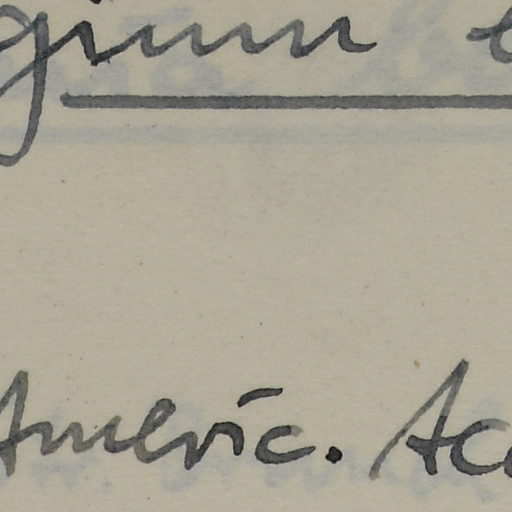 gium e
Americ. Ac